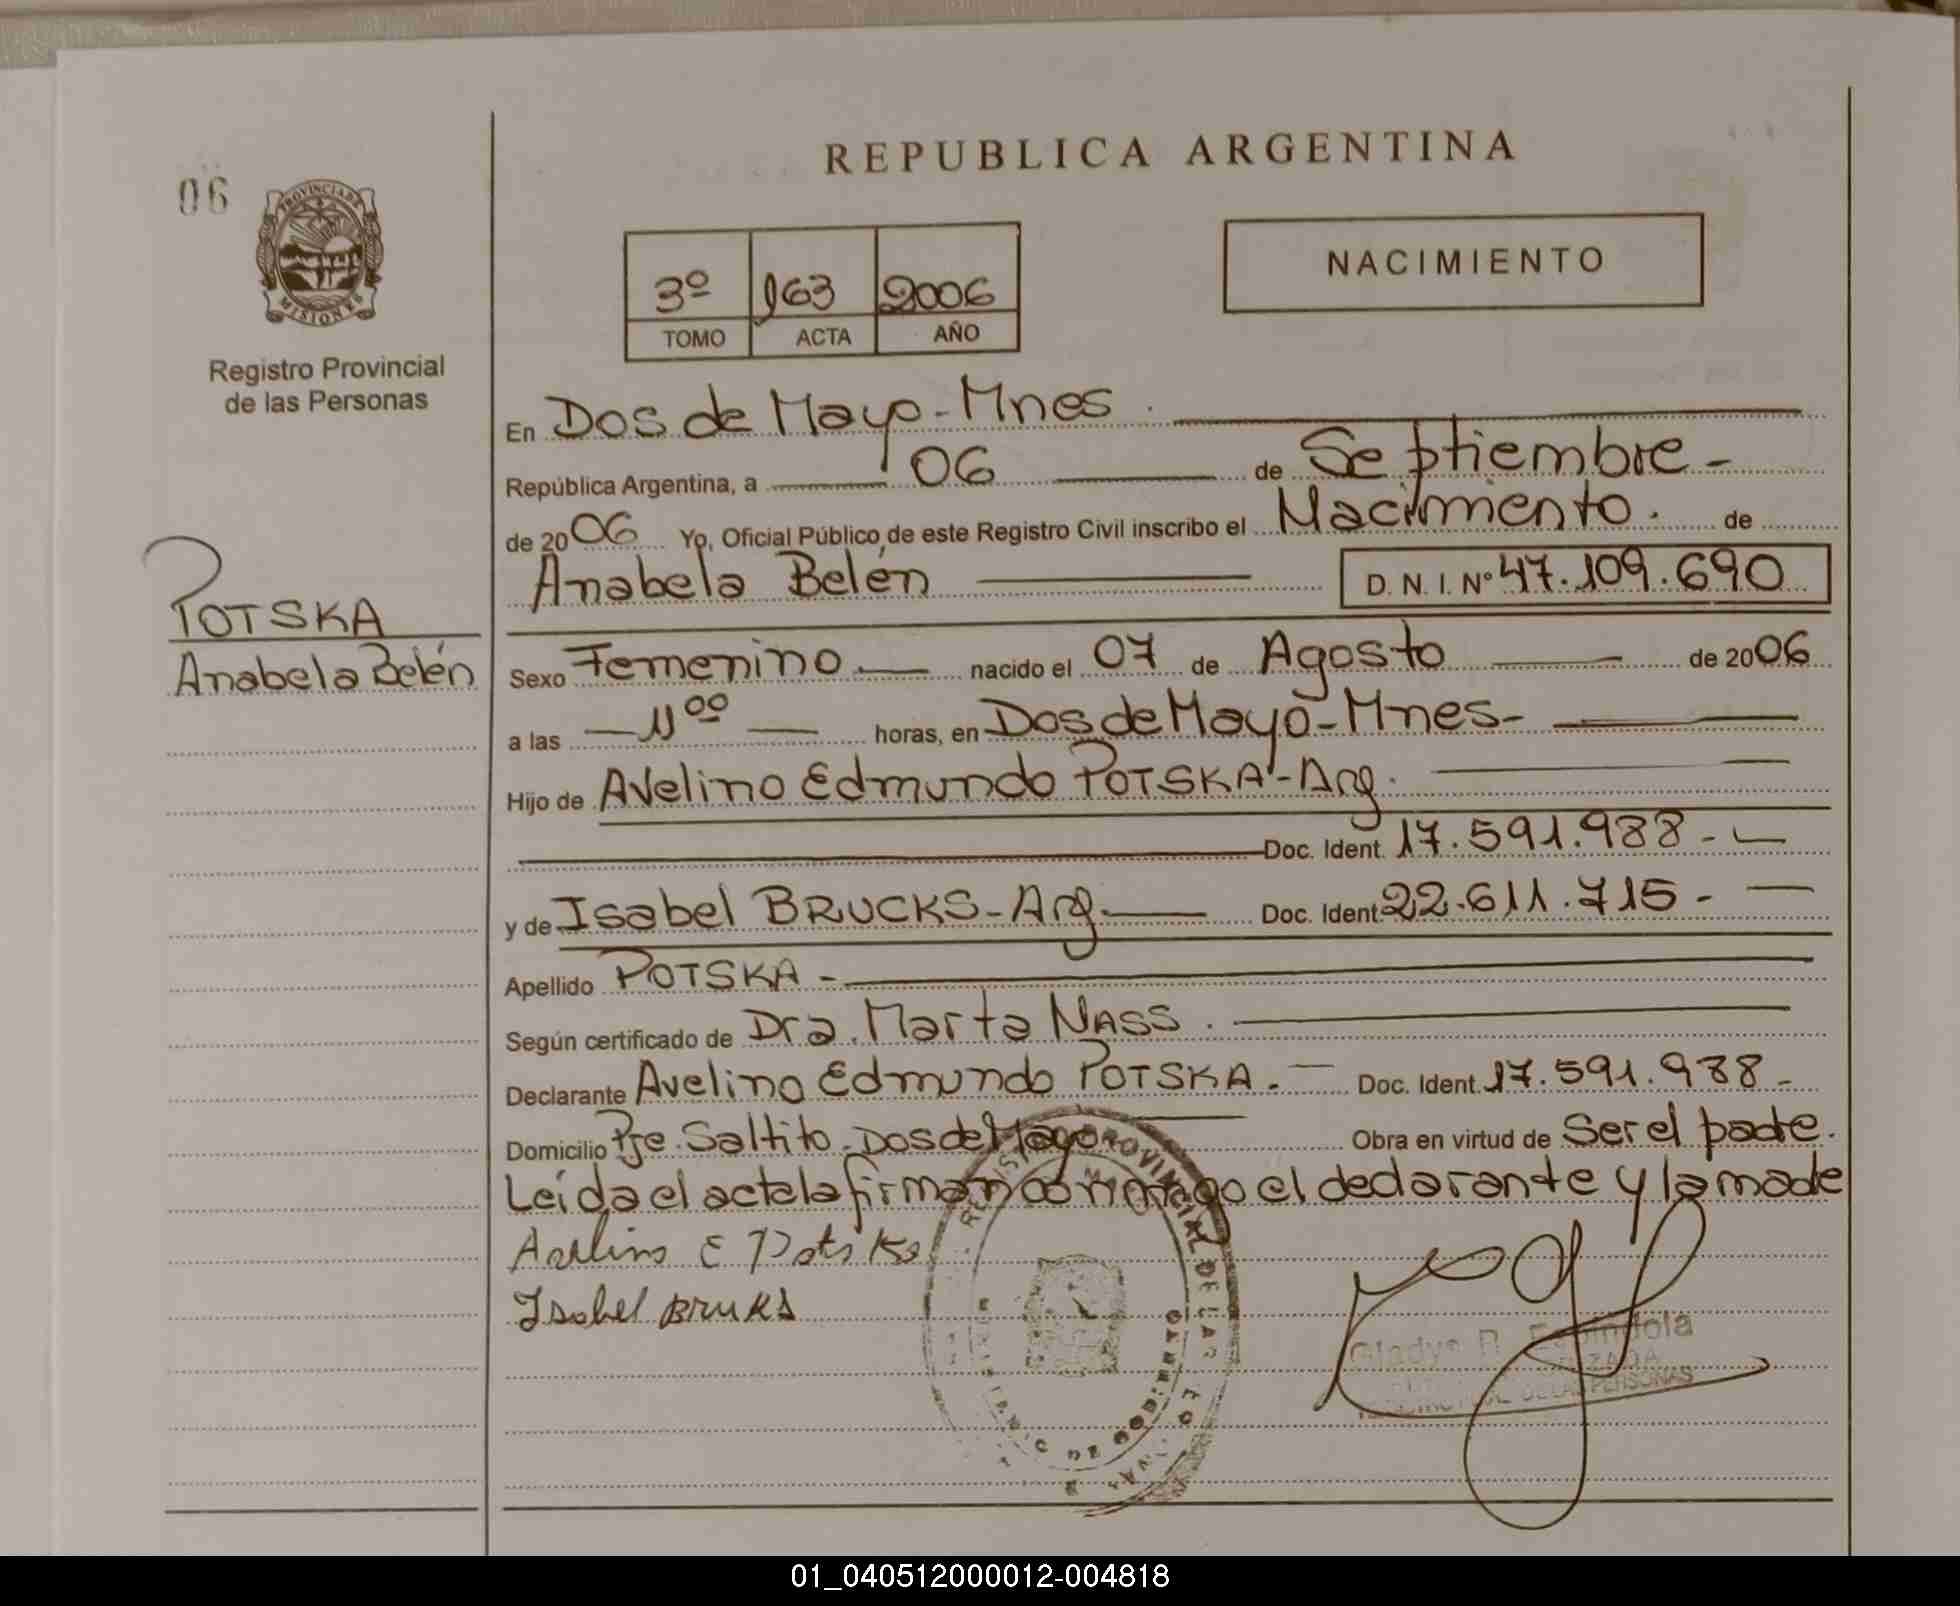 REPUBLICA ARGENTINA
06
PROVINCIA DE
MISIONES
Registro Provincial
de las Personas
3º 163 2006
TOMO ACTA AÑO
NACIMIENTO
POTSKA
Anabela Belén
En Dos de Mayo - Mnes.
República Argentina, a 06 de Septiembre -
de 2006 Yo, Oficial Público de este Registro Civil inscribo el Nacimiento. de
Anabela Belén D. N. I. Nº 47.109.690
Sexo Femenino nacido el 07 de Agosto de 2006
a las 11⁰⁰ horas, en Dos de Mayo - Mnes -
Hijo de Avelino Edmundo POTSKA - Arg.
Doc. Ident. 17.591.988 -
y de Isabel BRUCKS - Arg. Doc. Ident 22.611.715 -
Apellido POTSKA -
Según certificado de Dra. Marta NASS.
Declarante Avelino Edmundo POTSKA. Doc. Ident. 17.591.988 -
Domicilio Pje. Saltito - Dos de Mayo Obra en virtud de Ser el padre.
Leída el acta la firman conmigo el declarante y la madre
Avelino E Potska
Isabel BRUKS
REGISTRO PROVINCIAL DE LAS
DE GOBIERNO
Gladys R. Espindola
DE LAS PERSONAS
01_040512000012-004818